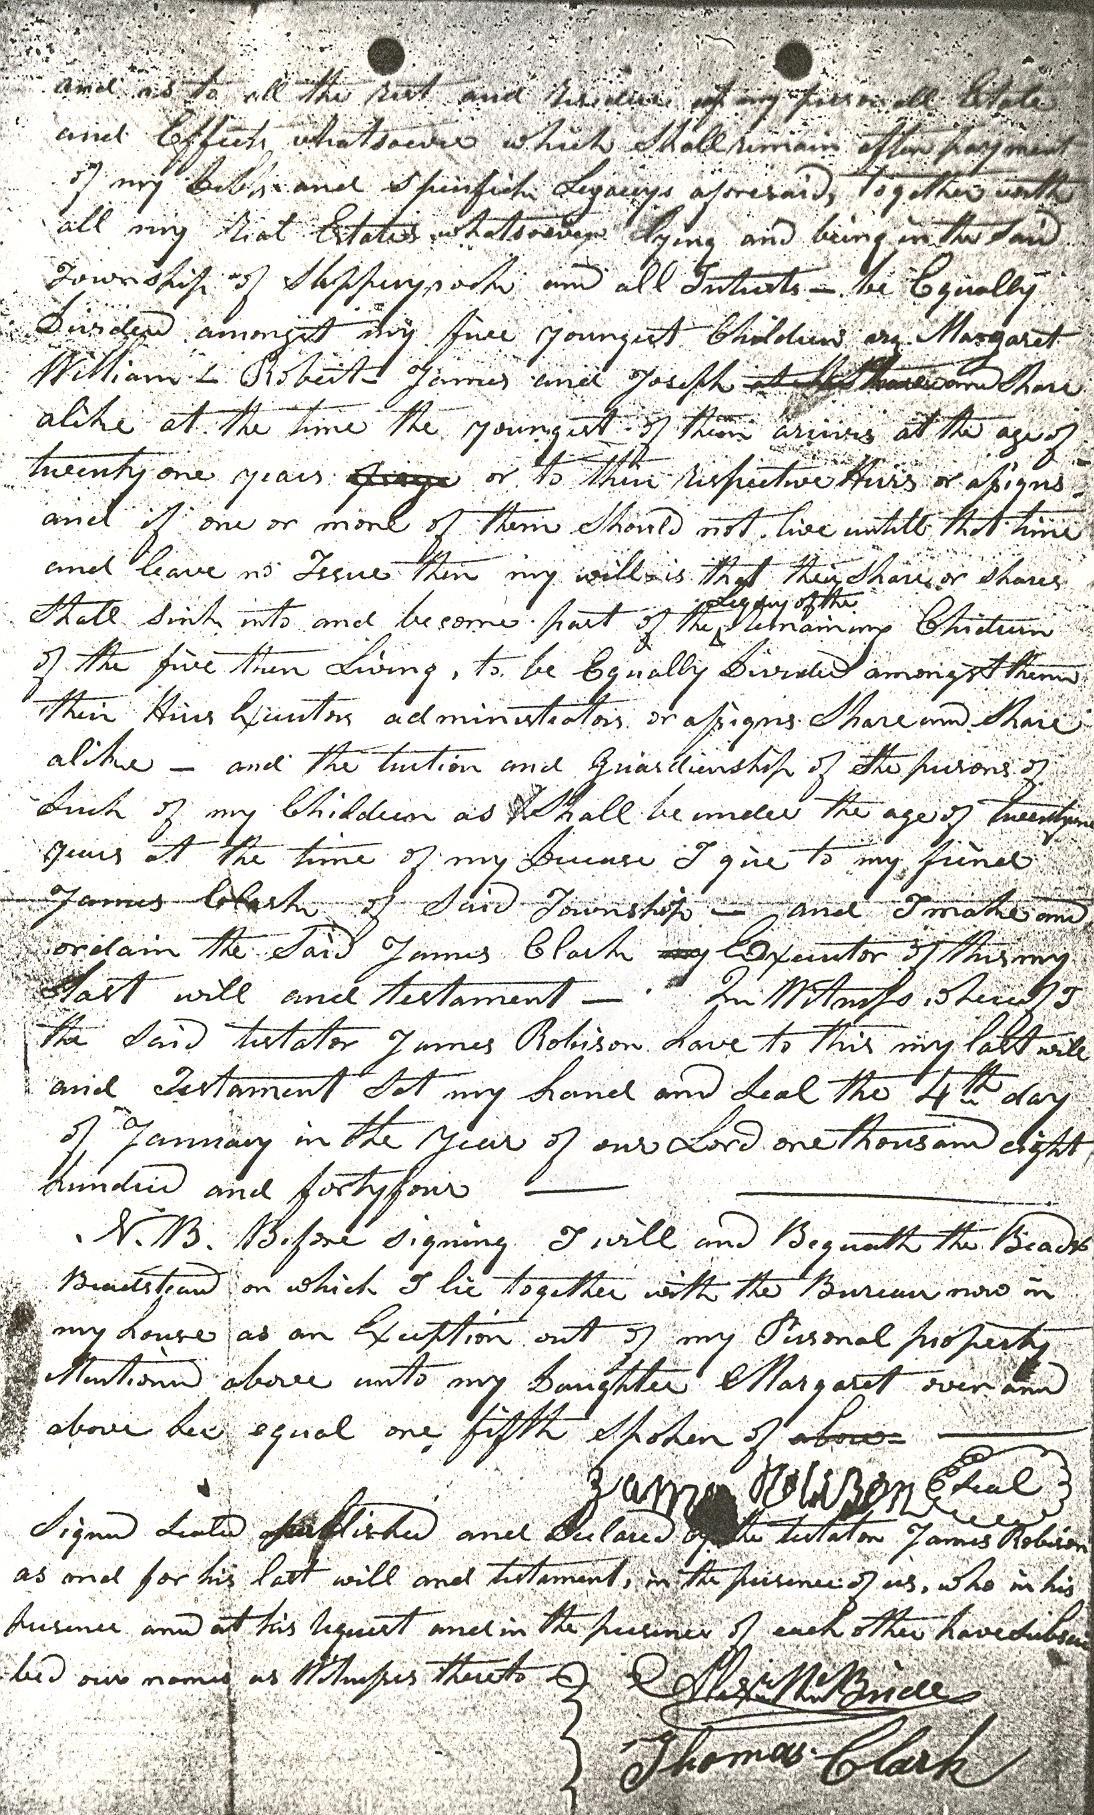 and as to all the rest and residue of my personall Estate
and Effects whatsoever which shall remain after payment
of my Debts and Specifick Legacys aforesaid, together with
all my Real Estates whatsoever lying and being in the said
Township of Slipperyrock and all Intrests – be Equally
Divided amongst my five youngest Children viz. Margaret
William L Robert – James and Joseph Share and Share
alike at the time the youngest of them arives at the age of
twenty one years of age or to their respective Heirs or assigns –
and if one or more of them should not live untill that time
and leave no Issue then my will is that their share or shares
Shall sink into and become part of the Legacy of the remaining Children
of the five then Living, to be Equally Divided amongst them
their Heirs Executors administrators or assigns Share and Share
alike – and the tuition and Guardianship of the persons of
Such of my Children as Shall be under the age of twenty one
years at the time of my Decease I give to my friend
James Clark of said Township – and I make and
ordain the Said James Clark my Executor of this my
last will and testament – In Witness whereof I
the Said testator James Robison have to this my last will
and Testament Set my hand and Seal the 4th day
of January in the year of our Lord one thousand eight
hundred and forty four
N.B. Before signing I will and Bequath the Bead &
Beadstead on which I lie together with the Bureau now in
my house as an Exception out of my Personal property
Mentiond above unto my Daughter Margaret over and
above her equal one fifth spoken of above
James Robison Seal
Signed Sealed published and Declared by the testator James Robison
as and for his last will and testament, in the presence of us, who in his
presence and at his request and in the presence of each other have subscri
bed our names as Witnesses thereto
Alexr. McBride
Thomas Clark